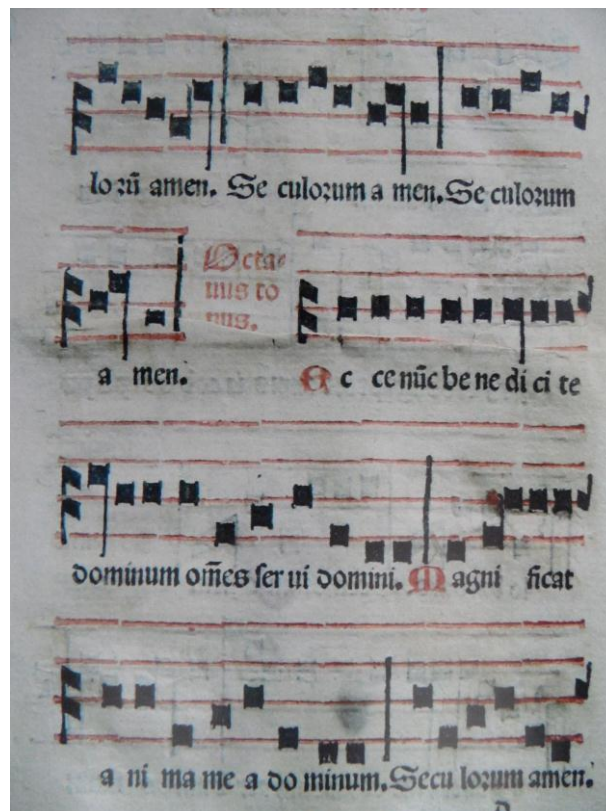 lorū amen. Se culorum a men. Se culorum
a men.
Octa-
uus to
nus.
E c ce nūc be ne di ci te
dominum om̄es ser ui domini. Magni ficat
a ni ma me a do minum. Secu lorum amen.